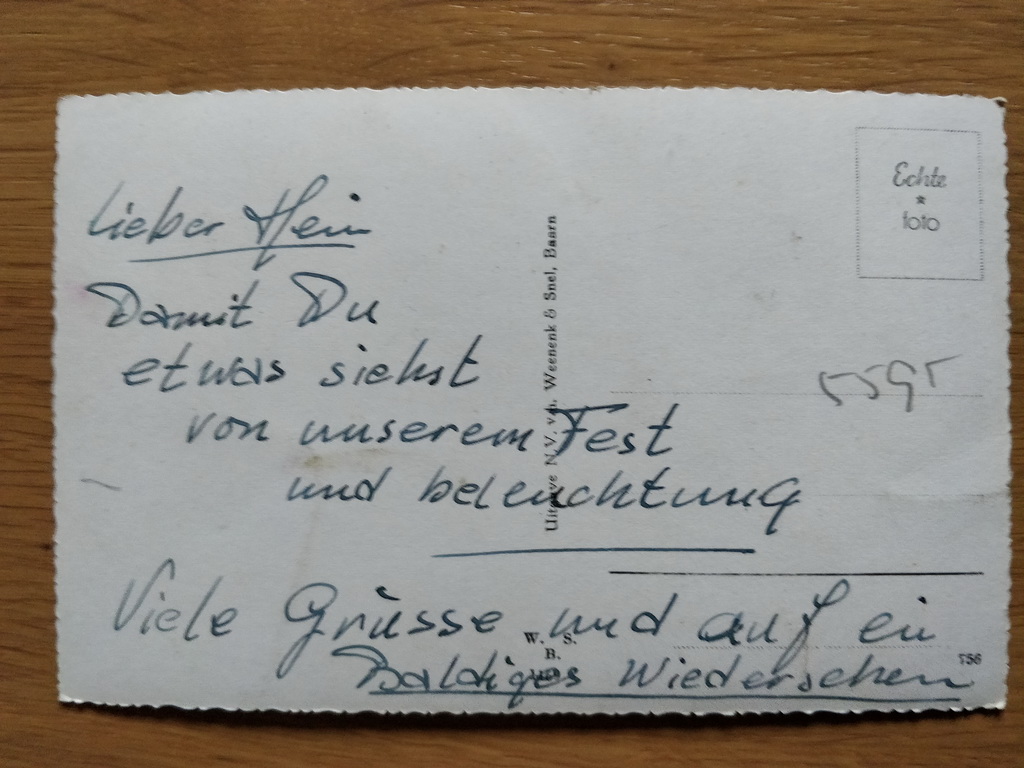 Echte
*
foto
Lieber Hein
Damit Du
etwas siehst
von unserem Fest
und beleuchtung
Viele Grüsse und auf ein
Baldiges Wiedersehen
5595
Uitgave N.V. v/h. Weenenk & Snel, Baarn
W. S.
B.
756